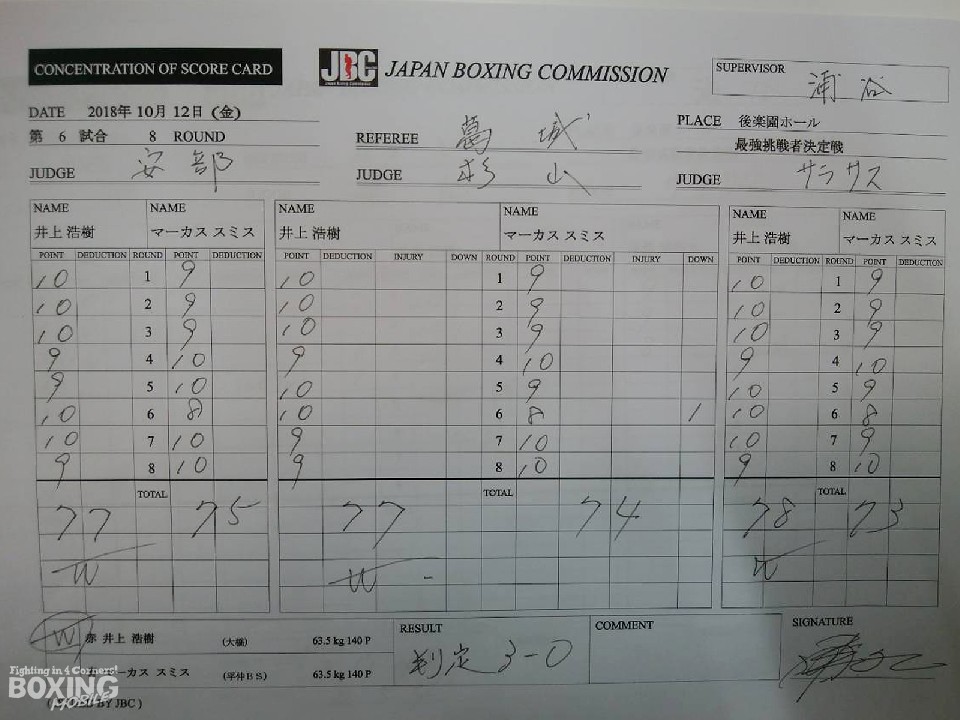 CONCENTRATION OF SCORE CARD
JBC JAPAN BOXING COMMISSION
SUPERVISOR 浦谷
DATE 2018年 10月 12日 (金)
第 6 試合 8 ROUND
REFEREE 葛城
PLACE 後楽園ホール
最強挑戦者決定戦
JUDGE 安部
JUDGE 杉山
JUDGE サラサス
NAME NAME NAME NAME NAME NAME
井上 浩樹 マーカス スミス 井上 浩樹 マーカス スミス 井上 浩樹 マーカス スミス
POINT DEDUCTION ROUND POINT DEDUCTION POINT DEDUCTION INJURY DOWN ROUND POINT DEDUCTION INJURY DOWN POINT DEDUCTION ROUND POINT DEDUCTION
10 1 9 10 1 9 10 1 9
10 2 9 10 2 9 10 2 9
10 3 9 10 3 9 10 3 9
9 4 10 9 4 10 9 4 10
9 5 10 10 5 9 10 5 9
10 6 8 10 6 8 1 10 6 8
10 7 10 9 7 10 10 7 9
9 8 10 9 8 10 9 8 10
TOTAL TOTAL TOTAL
77 75 77 74 78 73
W W - W
W 赤 井上 浩樹 (大橋) 63.5 kg 140 P
RESULT 判定 3-0
COMMENT
SIGNATURE
マーカス スミス (平仲BS) 63.5 kg 140 P
Fighting in 4 Corners!
BOXING
MOBILE
BY JBC )